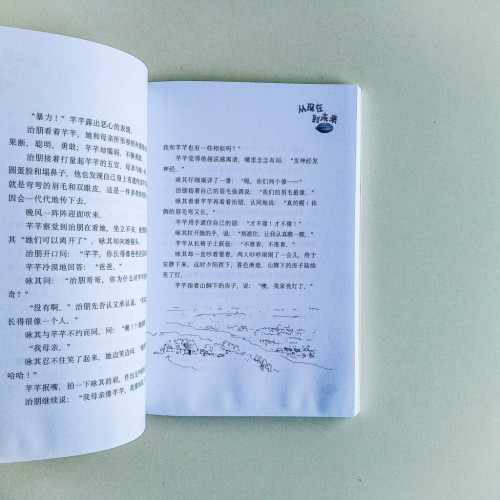 “暴力！”芊芊露出恶心的表情。
治朋看着芊芊，她和母亲所形容的
果断，聪明，勇敢；芊芊却懦弱，不够
治朋接着打量起芊芊的五官，母亲
圆蛋脸和塌鼻子。他也发现自己身上有
就是弯弯的眉毛和双眼皮。这是一件多
因会一代代地传下去。
晚风一阵阵迎面吹来。
芊芊察觉到治朋在看她，坐立不安
其“她们可以离开了”，咏其却向她摇头。
治朋开口问：“芊芊，你长得像爸爸
芊芊冷漠地回答：“爸爸。”
咏其问：“治朋哥哥，你为什么对芊芊
奇？”
“没有啊。”治朋先否认又承认说，
长得很像一个人。”
咏其与芊芊不约而同，问：“噢！？
“我母亲。”
咏其忍不住笑了起来，她边笑边问：
哈哈！”
芊芊抿嘴，拍一下咏其的肩，作出
治朋继续说：“我母亲像芊芊，
从现在
到未来
我和芊芊也有一些相似吗？”
芊芊觉得他越说越离谱，嘴里念念有词：“发神经发
神经。”
咏其仔细端详了一番：“呃，你们两个像——”
治朋指着自己的眉毛强调说：“我们的眉毛最像。”
咏其看看芊芊再看看治朋，认同地说：“真的喔！你
俩的眉毛弯又长。”
芊芊用手遮住自己的眉：“才不像！才不像！”
咏其拉开她的手，说：“别遮住，让我认真瞧一瞧。”
芊芊从长椅子上跃起：“不准看，不准看。”
咏其却一直吵着要看，两人吵吵闹闹了一会儿，终于
安静下来。这时夕阳西下，暮色渐逝，山脚下的房子陆续
亮了灯。
芊芊指着山脚下的房子，说：“噢，我家亮灯了。”